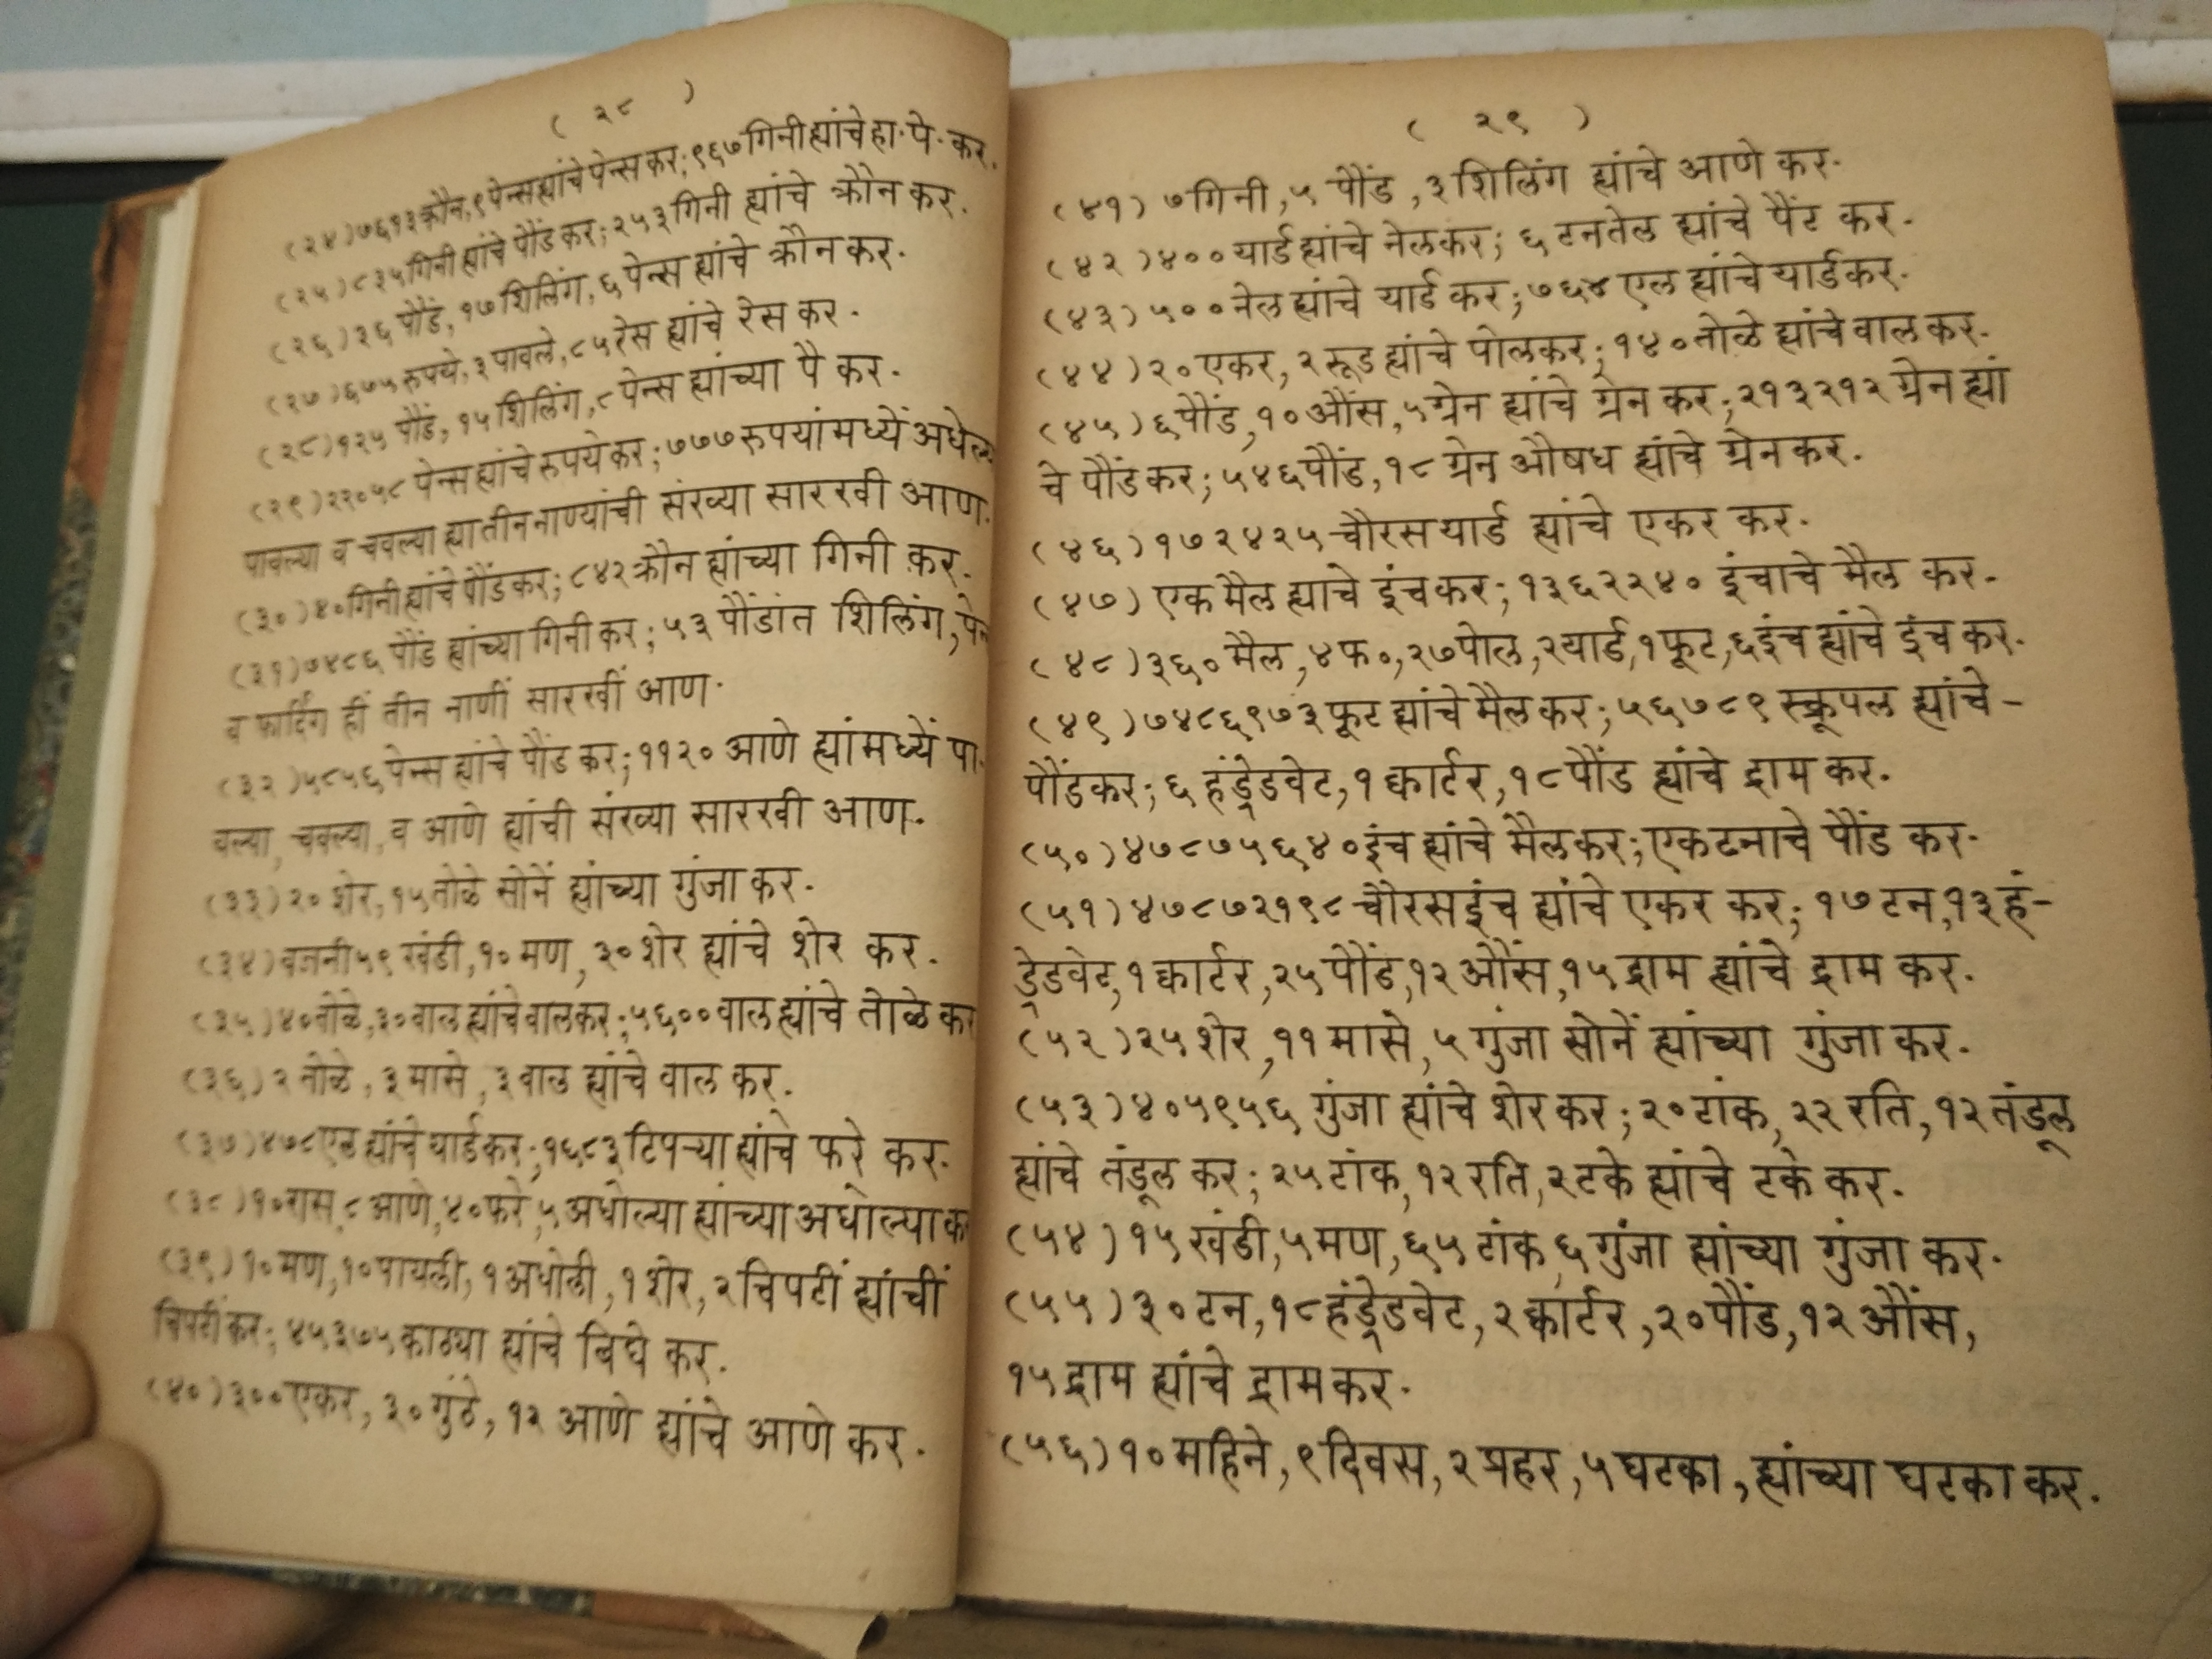 ( २८ )
(२४) ७६१३ क्रौन, ९ पेन्स ह्यांचे पेन्स कर; ९६७ गिनी ह्यांचे हा· पे· कर.
(२५) ८३५ गिनी ह्यांचे पौंड कर; २५३ गिनी ह्यांचे क्रौन कर.
(२६) ३६ पौंड, १७ शिलिंग, ६ पेन्स ह्यांचे क्रौन कर.
(२७) ६७५ रुपये, ३ पावले, ८५ रेस ह्यांचे रेस कर.
(२८) १२५ पौंड, १५ शिलिंग, ८ पेन्स ह्यांच्या पै कर.
(२९) २२०५८ पेन्स ह्यांचे रुपये कर; ७७७ रुपयांमध्यें अधेल्या
पावल्या व चवल्या ह्या तीन नाण्यांची संख्या सारखी आण.
(३०) ४० गिनी ह्यांचे पौंड कर; ८४२ क्रौन ह्यांच्या गिनी कर.
(३१) ७४८६ पौंड ह्यांच्या गिनी कर; ५३ पौंडांत शिलिंग, पेन
व फार्दिंग हीं तीन नाणीं सारखीं आण.
(३२) ५८५६ पेन्स ह्यांचे पौंड कर; ११२० आणे ह्यांमध्यें पा-
वल्या, चवल्या, व आणे ह्यांची संख्या सारखी आण.
(३३) २० शेर, १५ तोळे सोनें ह्यांच्या गुंजा कर.
(३४) वजनी ५९ खंडी, १० मण, ३० शेर ह्यांचे शेर कर.
(३५) ४० तोळे, ३० वाल ह्यांचे वाल कर; ५६०० वाल ह्यांचे तोळे कर
(३६) २ तोळे, ३ मासे, ३ वाल ह्यांचे वाल कर.
(३७) ४७८ एल ह्यांचे यार्ड कर; १६८३ टिपऱ्या ह्यांचे फरे कर.
(३८) १० रास, ८ आणे, ४० फरे, ५ अधोल्या ह्यांच्या अधोल्या क
(३९) १० मण, १० पायली, १ अधोली, १ शेर, २ चिपटीं ह्यांचीं
चिपटीं कर; ४५३७५ काठ्या ह्यांचे बिघे कर.
(४०) ३०० एकर, ३० गुंठे, १२ आणे ह्यांचे आणे कर.
( २९ )
(४१) ७ गिनी, ५ पौंड, ३ शिलिंग ह्यांचे आणे कर.
(४२) ४०० यार्ड ह्यांचे नेल कर; ६ टन तेल ह्यांचे पैंट कर.
(४३) ५०० नेल ह्यांचे यार्ड कर; ७६४ एल ह्यांचे यार्ड कर.
(४४) २० एकर, २ रूड ह्यांचे पोल कर; १४० तोळे ह्यांचे वाल कर.
(४५) ६ पौंड, १० औंस, ५ ग्रेन ह्यांचे ग्रेन कर; २१३२१२ ग्रेन ह्यां
चे पौंड कर; ५४६ पौंड, १८ ग्रेन औषध ह्यांचे ग्रेन कर.
(४६) १७२४२५ चौरस यार्ड ह्यांचे एकर कर.
(४७) एक मैल ह्याचे इंच कर; १३६२२४० इंचाचे मैल कर.
(४८) ३६० मैल, ४ फ०, २७ पोल, २ यार्ड, १ फूट, ६ इंच ह्यांचे इंच कर.
(४९) ७४८६९७३ फूट ह्यांचे मैल कर; ५६७८९ स्क्रूपल ह्यांचे -
पौंड कर; ६ हंड्रेडवेट, १ क्वार्टर, १८ पौंड ह्यांचे द्राम कर.
(५०) ४७८७५६४० इंच ह्यांचे मैल कर; एक टनाचे पौंड कर.
(५१) ४७८७२१९८ चौरस इंच ह्यांचे एकर कर; १७ टन, १३ हं-
ड्रेडवेट, १ क्वार्टर, २५ पौंड, १२ औंस, १५ द्राम ह्यांचे द्राम कर.
(५२) २५ शेर, ११ मासे, ५ गुंजा सोनें ह्यांच्या गुंजा कर.
(५३) ४०५९५६ गुंजा ह्यांचे शेर कर; २० टांक, २२ रति, १२ तंडूल
ह्यांचे तंडूल कर; २५ टांक, १२ रति, २ टके ह्यांचे टके कर.
(५४) १५ खंडी, ५ मण, ६५ टांक, ६ गुंजा ह्यांच्या गुंजा कर.
(५५) ३० टन, १८ हंड्रेडवेट, २ क्वार्टर, २० पौंड, १२ औंस,
१५ द्राम ह्यांचे द्राम कर.
(५६) १० महिने, ९ दिवस, २ प्रहर, ५ घटका, ह्यांच्या घटका कर.